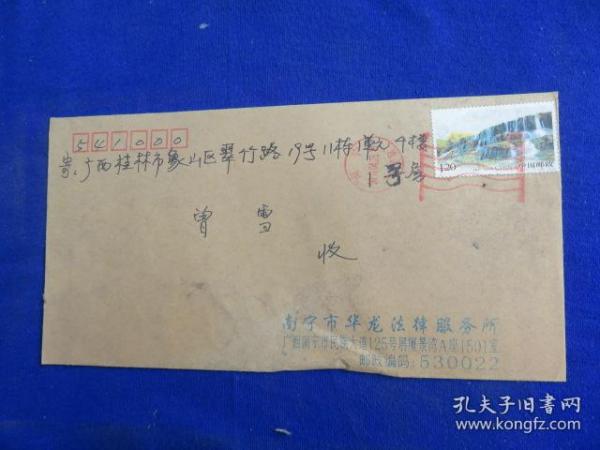 541000
寄:广西桂林市象山区翠竹路19号11栋1单元4楼
1号房
曾雪
收
1.20
中国邮政
南宁市华龙法律服务所
广西南宁市民族大道125号
A座1501室
邮政编码:530022
孔夫子旧书网
www.kongfz.com